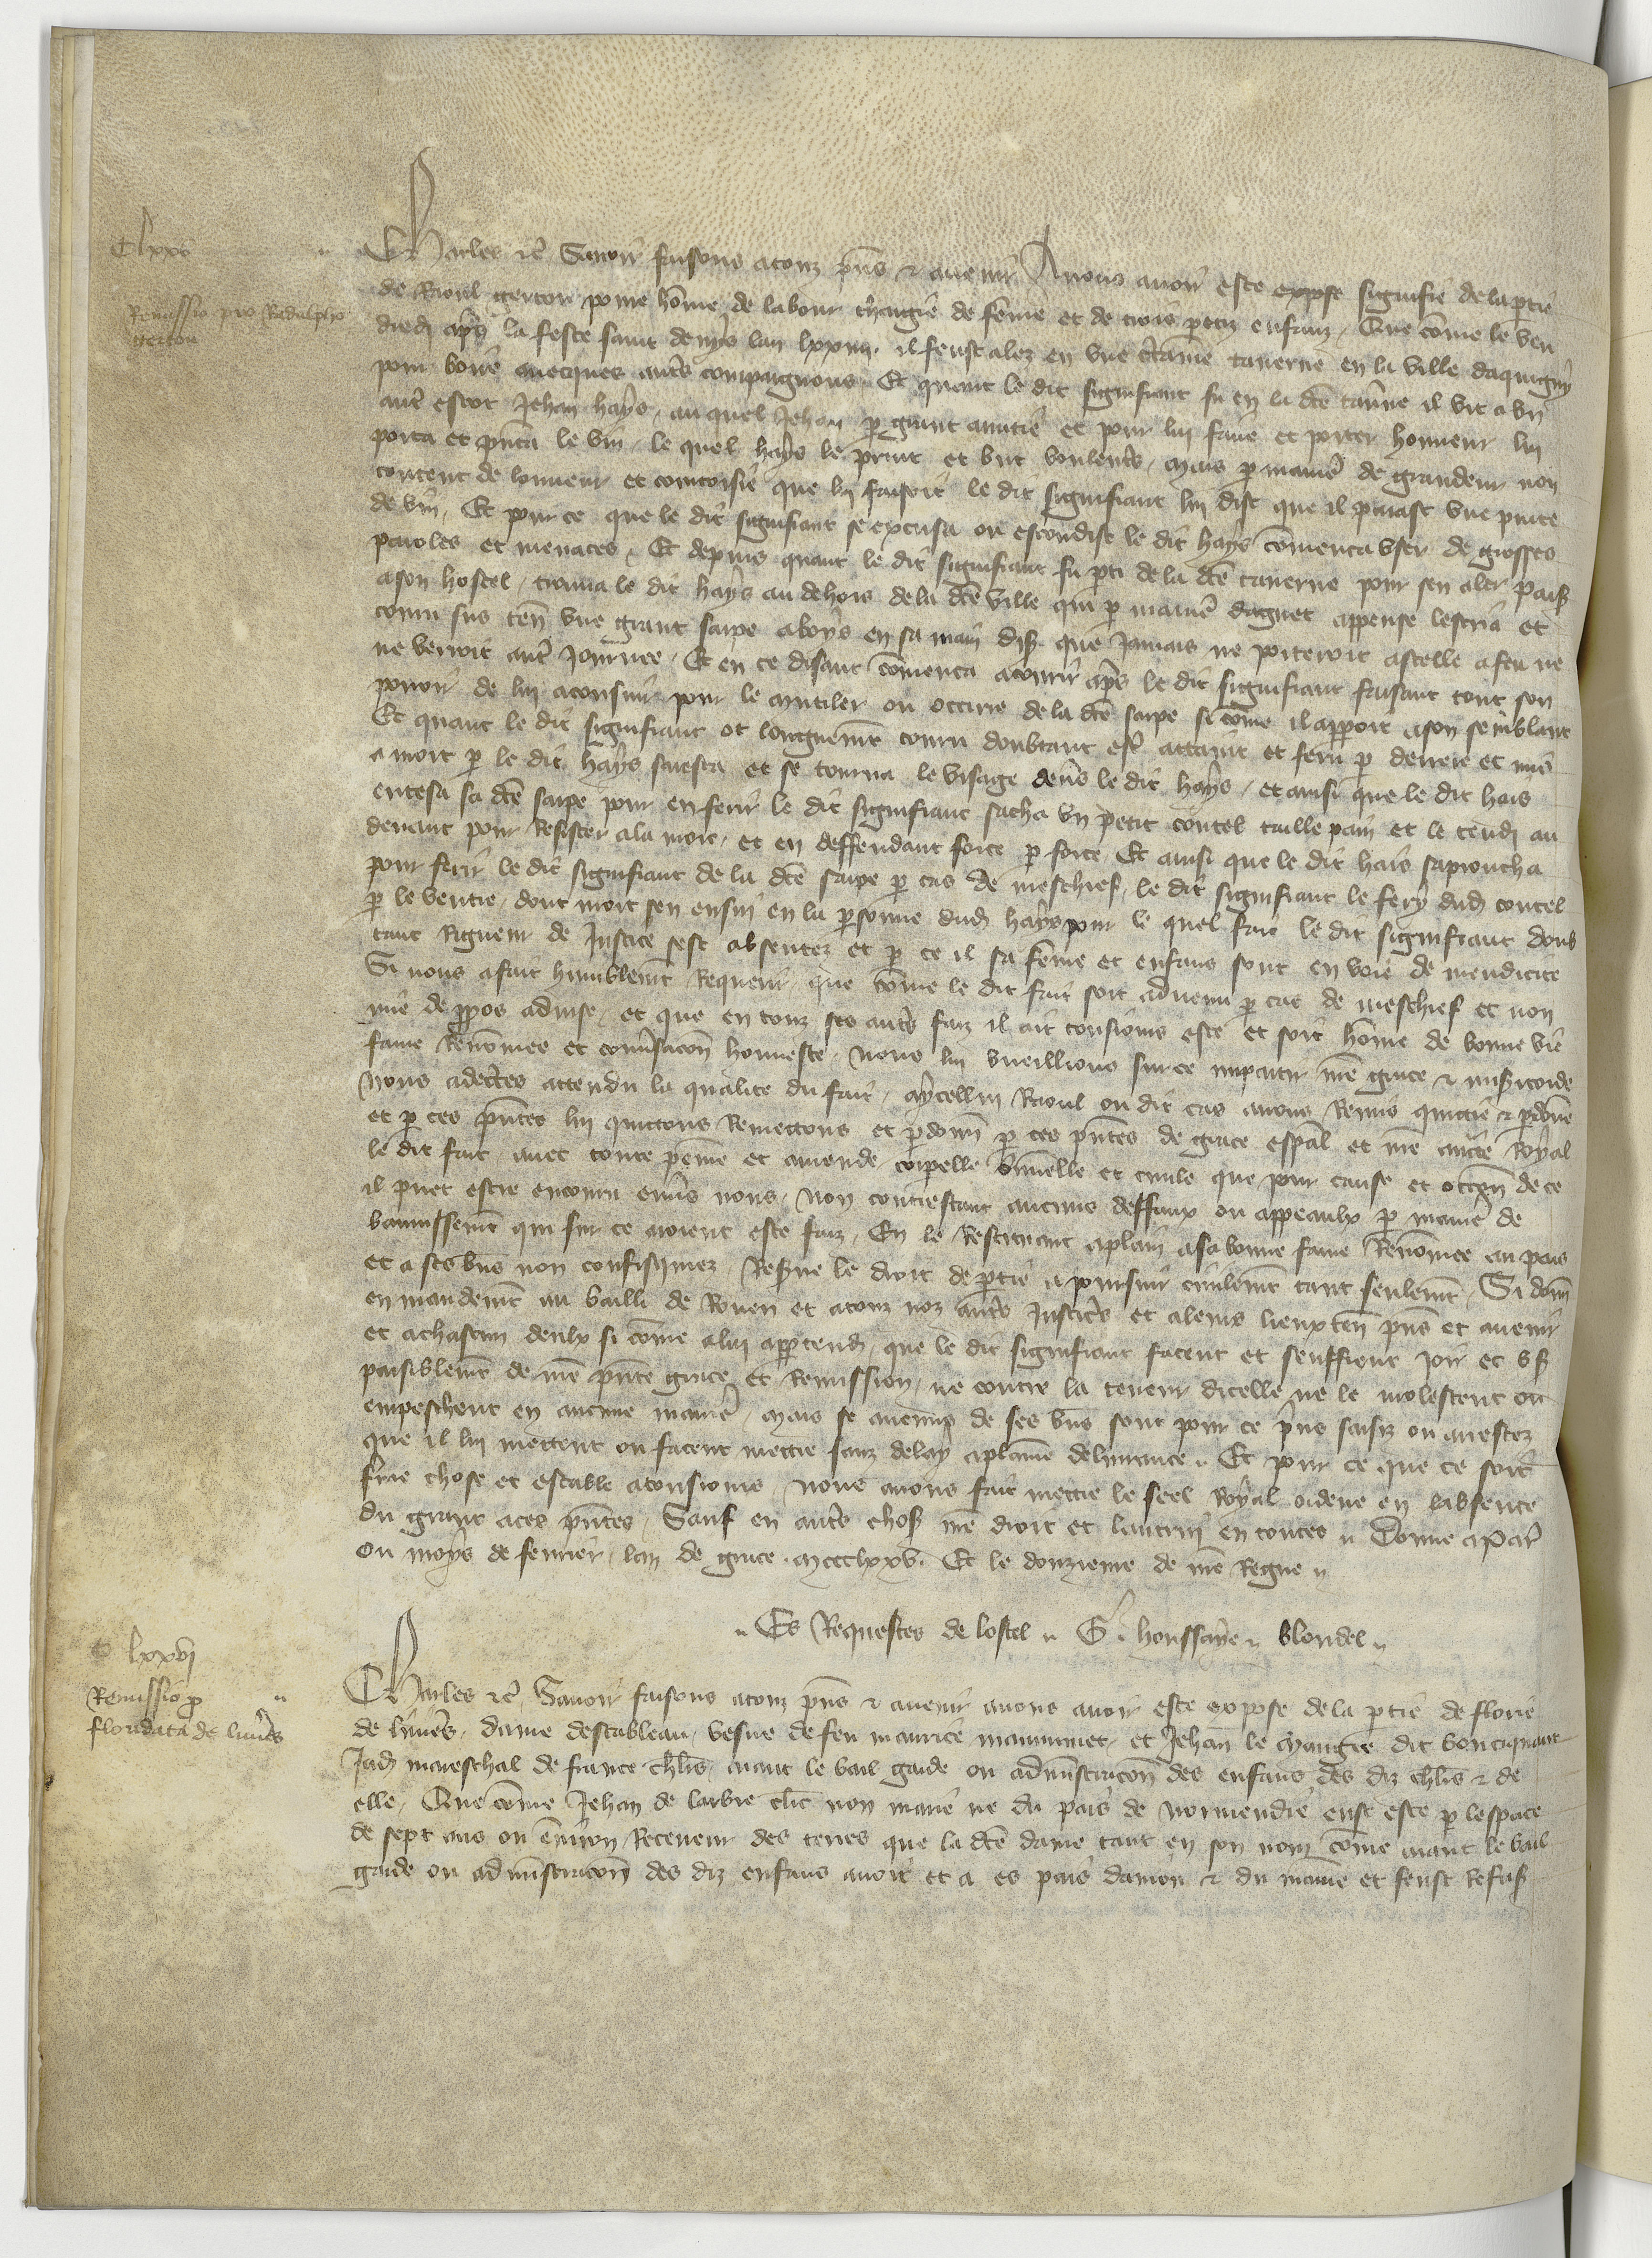 Clxxv
Remissio pro Radulpho
gerton
Charles etc̃ Sauoir faisons a touz pñs & auenir A nous auoir este exposé signifié de la ptie
de Raoul gerton poure hõme de labour chargié de fẽme et de trois petiz enfanz, Que cõme le ven
dredi apres la feste saint denys lan lxxiiij. il feust alez en vne ctaine tauerne en la ville daquigny
pour boire auecques autres compaignons. Et quant le dit signifiant fu en la dce tauerne il vit a vn
autre escot Jehan hays, au quel Jehan p grant amitié et pour lui faire et porter honneur lui
porta et pñta le vin, le quel hays le print et but voulentrs, mais p maniere de grandeur non
content de lonneur et courtoisie que lui faisoit le dit signifiant lui dist que il paiast vne pinte
de vin, Et pour ce que le dit signifiant se excusa ou escondist le dit hays cõmenca vser de grosses
paroles et menaces, Et depuis quant le dit signifiant fu pti de la dce tauerne pour sen aler paisi
a son hostel, trouua le dit hays au dehors de la dce ville qui p maniere daguet appense lescria et
couru sus ten vne grant sarpe a boys en sa main dis que jamais ne porteroit astelle a feu ne
ne verroit autre journee, Et en ce disant cõmenca a courir apres le dit signifiant faisant tout son
pouoir de lui aconsuir pour le mutiler ou occirre de la dce sarpe si cõme il apparoit a son semblant
Et quant le dit signifiant ot longuemt couru doubtant estre attaint et feru p derriere et mis
a mort p le dit hays saresta et se tourna le visage deuers le dit hays, et ainsi que le dit hais
entesa sa dce sarpe pour en ferir le dit signifiant sacha vn petit coutel taille pain et le tendi au
deuant pour resister a la mort, et en deffendant force p force, Et ainsi que le dit hais sapproucha
pour ferir le dit signifiant de la dce sarpe p cas de meschief, le dit signifiant le fery dud coutel
p le ventre, dont mort sen ensui en la psonne dud hays pour le quel fait le dit signifiant doub
tant Rigueur de Justice sest absentez et p ce il sa fẽme et enfans sont en voie de mendicite
Si nous a fait humblemt requerir, que cõme le dit fait soit aduenu p cas de meschief et non
mie de ppos aduise, et que en touz ses autres faiz il ait tousiours este et soit hõme de bonne vie
fame Renõmee et conuersacon honneste. Nous lui vueillions sur ce impartir nre grace & misicorde
Nous adectes attendu la qualite du fait, a ycellui Raoul ou dit cas auons Remis quictie & pdonne
et p ces pñtes lui quictons Remettons et pdonn p ces pñtes de grace espal et nre aucte Royal
le dit fait, auec toute peine et amende corpelle criminelle et ciuile que pour cause et occon de ce
il puet estre encouru enuers nous, Non contrestant aucuns deffaux ou appeaulx p maniere de
bannissemt qui sur ce aroient este faiz, En le Restituant a plain a sa bonne fame Renõmee au pais
et a ses biens non confisquez, Resue le droit de ptie a poursuir ciuilemt tant seulemt, Si donn
en mandemt au bailli de Rouen et a touz noz autres Justicrs et a leurs lieux ten pñs et auenir
et a chascun deulx si cõme a lui apptend, que le dit signifiant facent et seuffrent joir et vs
paisiblemt de nre pñte grace et Remission, ne contre la teneur dicelle ne le molestent ou
empeschent en aucune maniere, mais se aucuns de ses biens sont pour ce prins saisiz ou arrestez
que il lui mettent ou facent mettre sanz delay a plaine deliurance. Et pour ce que ce soit
ferme chose et estable a tousiours, Nous auons fait mettre le seel Royal ordene en labsence
du grant a ces pñtes, Sauf en autres choses nre droit et lautrui en toutes. Donne a Paris
ou moys de feurier, lan de grace. mccclxxv. Et le douzieme de nre Regne.
Es Requestes de lostel. G. houssaye. blondel.
C lxxvi
Remissio p
floridata de liniers
Charles etc̃ Sauoir faisons a touz pñs & auenir a nous auoir este expose de la ptie de florie
de liniers, dame destableau, vefue de feu maurice mauuinet, et Jehan le Maingre dit bouciquaut
Jadis mareschal de france chlrs, aiant le bail garde ou adminstracon des enfans des diz chlrs & de
elle, Que cõme Jehan de larbre clerc non marie ne du pais de normendie eust este p lespace
de sept ans ou enuiron Receueur des terres que la dce dame tant en son nom cõme aiant le bail
garde ou adminstracon des diz enfans auoit et a es pais daniou & du maine et feust Refus